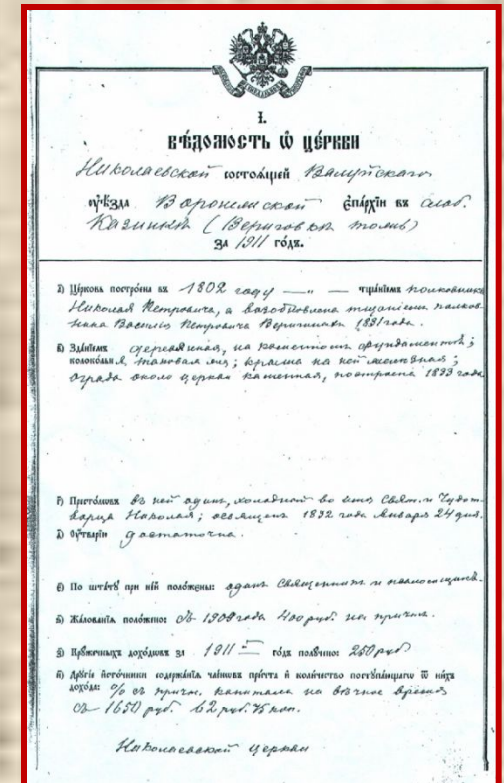 І.
ВѢДОМОСТЬ Ѡ ЦЕ́РКВИ
Николаевской состоѧщей Валуйскаго
ѹѣзда Воронежской Єпархіи въ слоб.
Казинкѣ (Вериговка тожъ)
За 1911 годъ.
а҃) Церковь построена въ 1802 году — „ — тщаніемъ полковника
Николая Петровича, а возобновлена тщаніемъ полков-
ника Василія Петровича Веригиныхъ 1831 года.
в҃) Зданіемъ деревянная, на каменномъ фундаментѣ;
колокольня таковая же; крыша на ней желѣзная;
ограда около церкви каменная, построена 1833 года
г҃) Престоловъ въ ней одинъ, холодной во имя Свят. и Чудот-
ворца Николая; освященъ 1832 года Января 24 дня.
д҃) Ѹтварію достаточна.
є҃) По штатѹ при ней положены: одинъ Священникъ и псаломщикъ.
ѕ҃) Жалованіѧ положено: съ 1909 года 400 руб. на причтъ.
з҃) Крѹжечныхъ доходовъ за 1911 годъ полѹчено: 250 руб
и҃) Дрѹгіе источники содержаніѧ членовъ причта и количество постѹпающагѡ ѿ нихъ
дохода: % съ причт. капитала на вѣчное время
съ 1650 руб. 62 руб. 75 коп.
Николаевской церкви